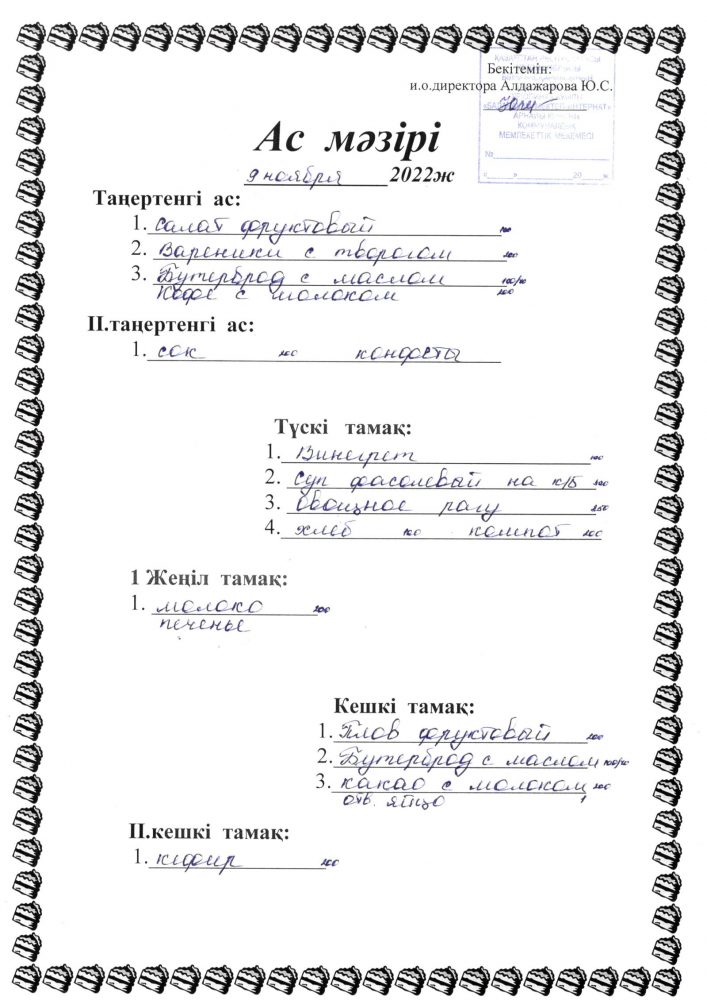 Бекітемін:
и.о.директора Алдажарова Ю.С.
АРНАЙЫ
КОММУНАЛДЫҚ
МЕМЛЕКЕТТІК МЕКЕМЕСІ
№
Ас мәзірі
9 ноября 2022ж
Таңертенгі ас:
1. Салат фруктовый 100
2. Вареники с творогом 200
3. Бутерброд с маслом 100/20
Кофе с молоком 200
II.таңертенгі ас:
1. сок 200 конфеты
Түскі тамақ:
1. Винегрет 100
2. Суп фасолевый на к/б 300
3. Овощное рагу 250
4. хлеб 100 компот 200
1 Жеңіл тамақ:
1. молоко 200
печенье
Кешкі тамақ:
1. Плов фруктовый 200
2. Бутерброд с маслом 100/20
3. какао с молоком 200
отв. яйцо 1
II.кешкі тамақ:
1. кефир 200